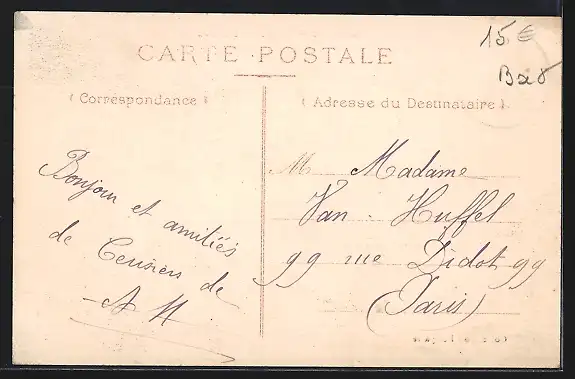 15 €
CARTE POSTALE
(Correspondance)
(Adresse du Destinataire)
M Madame
Van Huffel
99 rue Didot 99
(Paris)
Bonjour et amitiés
de de
A H